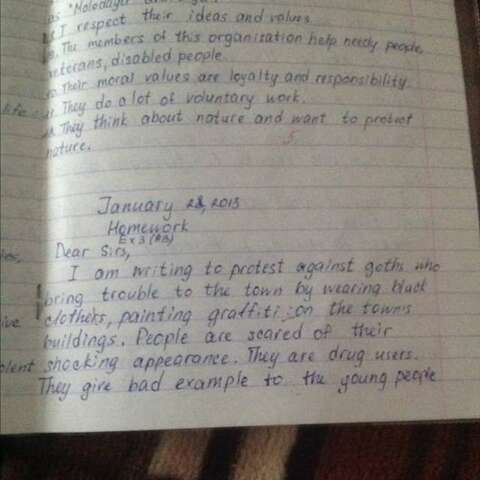 as "Molodaya
I respect their ideas and values
The members of this organisation help needy people,
veterans, disabled people.
Their moral values are loyalty and responsibility.
life
They do a lot of voluntary work.
They think about nature and want to protect
nature.
5
January 28, 2013
Homework
Ex 3 (AB)
Dear Sirs,
I am writing to protest against goths who
bring trouble to the town by wearing black
clothers, painting graffiti on the town's
buildings. People are scared of their
olent shocking appearance. They are drug users.
They give bad example to the young people